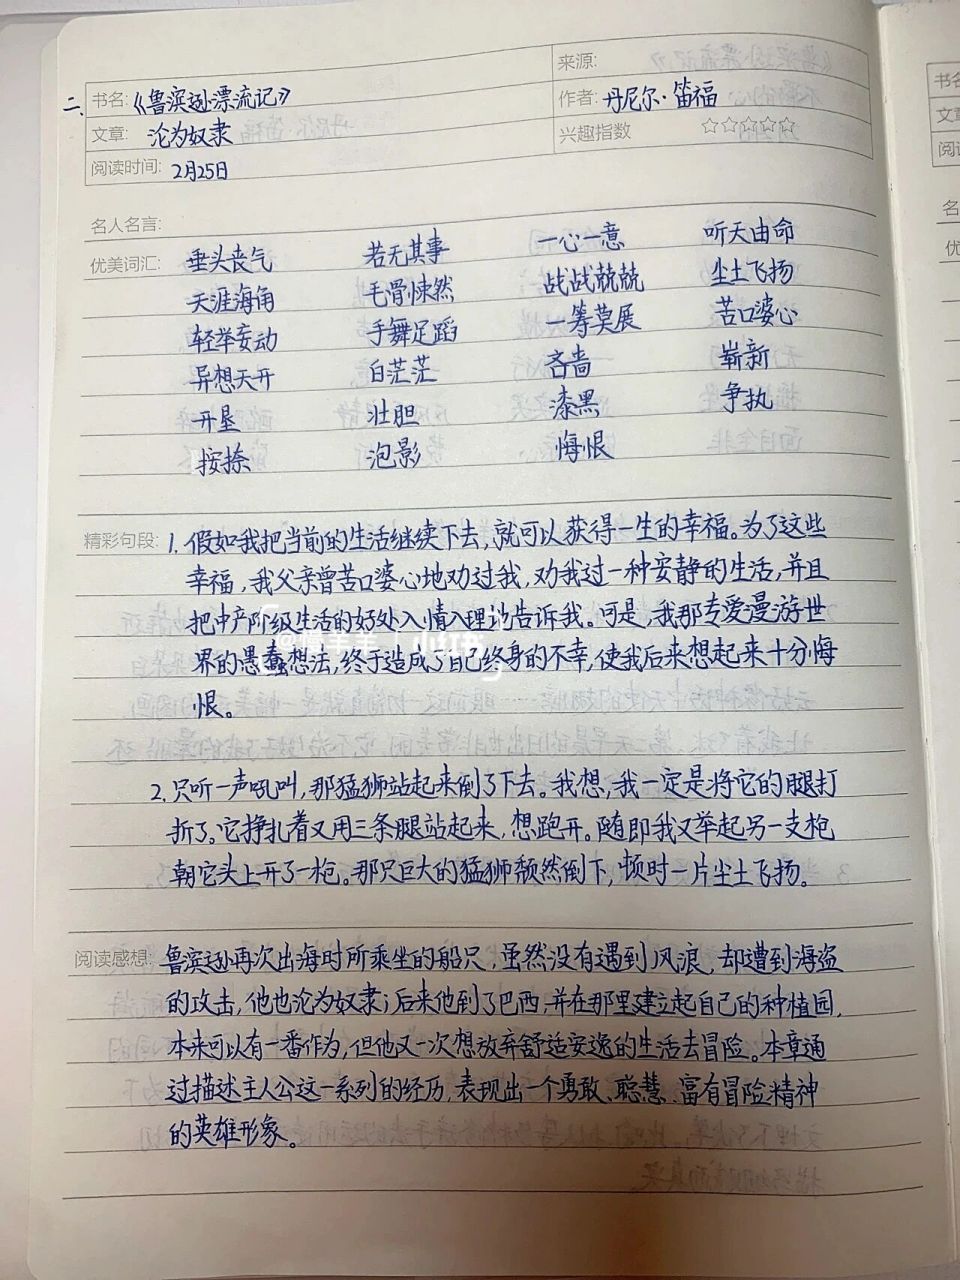 来源:
二、书名:《鲁滨逊漂流记》
作者: 丹尼尔·笛福
文章: 沦为奴隶
兴趣指数 ☆☆☆☆☆
阅读时间: 2月25日
名人名言:
优美词汇: 垂头丧气 若无其事 一心一意 听天由命
天涯海角 毛骨悚然 战战兢兢 尘土飞扬
轻举妄动 手舞足蹈 一筹莫展 苦口婆心
异想天开 白茫茫 吝啬 崭新
开垦 壮胆 漆黑 争执
按捺 泡影 悔恨
精彩句段: 1.假如我把当前的生活继续下去,就可以获得一生的幸福。为了这些
幸福,我父亲曾苦口婆心地劝过我,劝我过一种安静的生活,并且
把中产阶级生活的好处入情入理地告诉我。可是,我那专爱漫游世
界的愚蠢想法,终于造成了自己终身的不幸,使我后来想起来十分悔
恨。
2.只听一声吼叫,那猛狮站起来倒了下去。我想,我一定是将它的腿打
折了。它挣扎着又用三条腿站起来,想跑开。随即我又举起另一支枪
朝它头上开了一枪。那只巨大的猛狮颓然倒下,顿时一片尘土飞扬。
阅读感想: 鲁滨逊再次出海时所乘坐的船只,虽然没有遇到风浪,却遭到海盗
的攻击,他也沦为奴隶;后来他到了巴西,并在那里建立起自己的种植园,
本来可以有一番作为,但他又一次想放弃舒适安逸的生活去冒险。本章通
过描述主人公这一系列的经历,表现出一个勇敢、聪慧、富有冒险精神
的英雄形象。
小红书